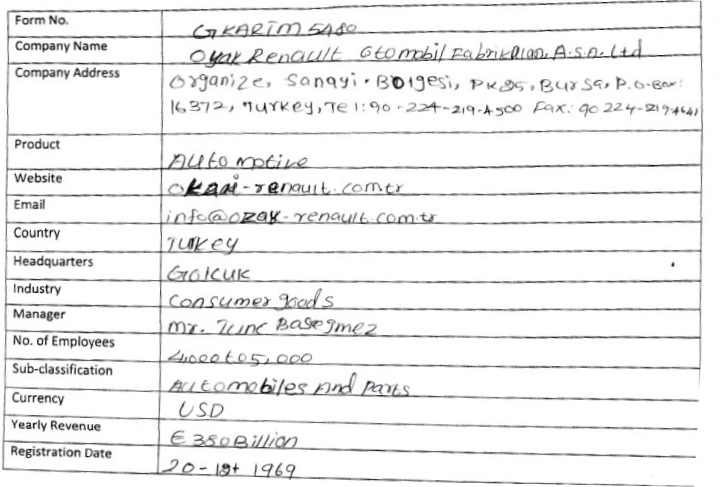 Form No. GKARIM5480
Company Name Oyak Renault Otomobil Fabrikalan, A.S.A. Ltd
Company Address Organize, Sanayi. Bolgesi, PK25, Bursa, P.O.Box:
16372, Turkey, Tel:90-224-219-4500 Fax: 90 224-219-4641
Product Automotive
Website -renault.comtr
Email info@ozak-renault.com.tr
Country Turkey
Headquarters Golcuk
Industry Consumer goods
Manager Mr. Tunc Basegmez
No. of Employees 4,000 to 5,000
Sub-classification Automobiles And Parts
Currency USD
Yearly Revenue € 380 Billion
Registration Date 1969